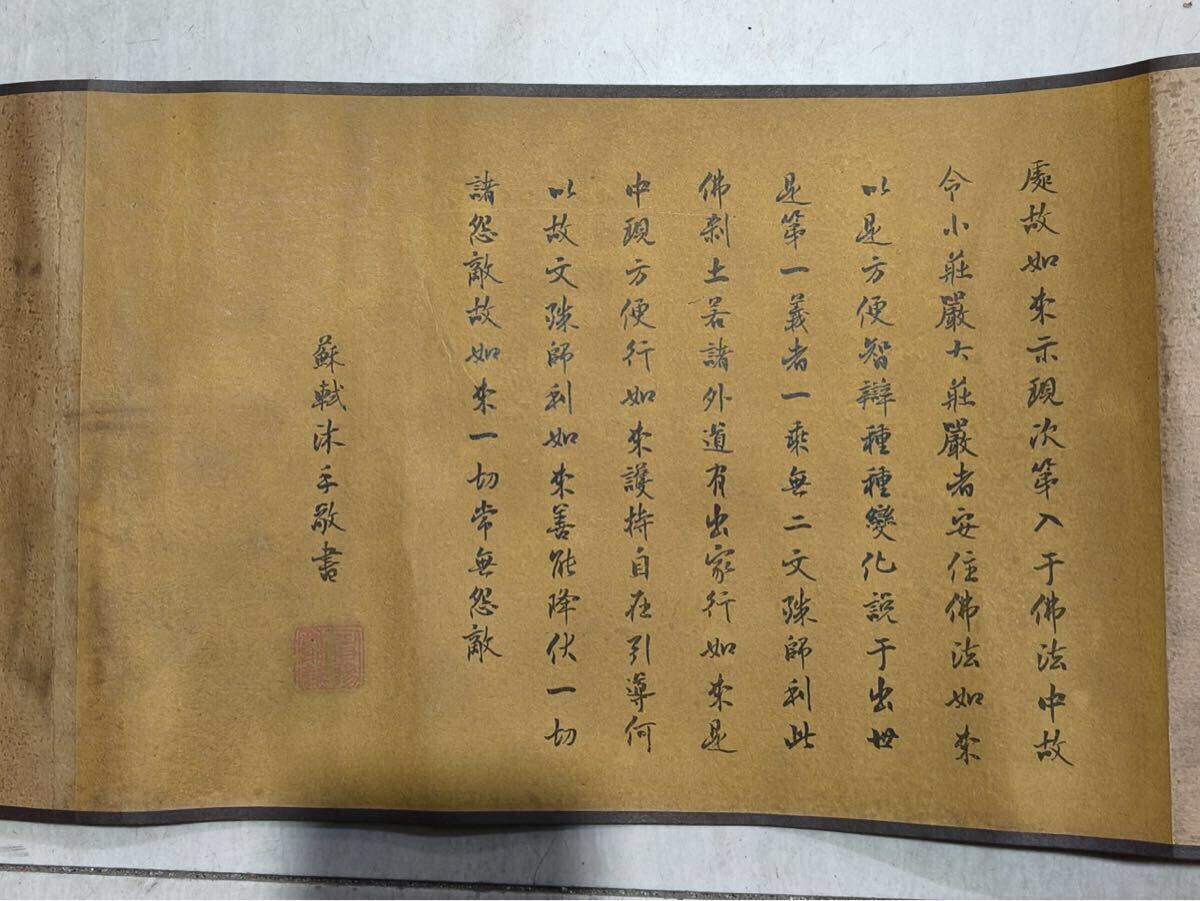 處故如來示現次第入于佛法中故
令小莊嚴大莊嚴者安住佛法如來
以是方便智辯種種變化說于出世
是第一義者一乘無二文殊師利此
佛刹土若諸外道有出家行如來是
中現方便行如來護持自在引導何
以故文殊師利如來善能降伏一切
諸怨敵故如來一切常無怨敵
蘇軾沐手敬書